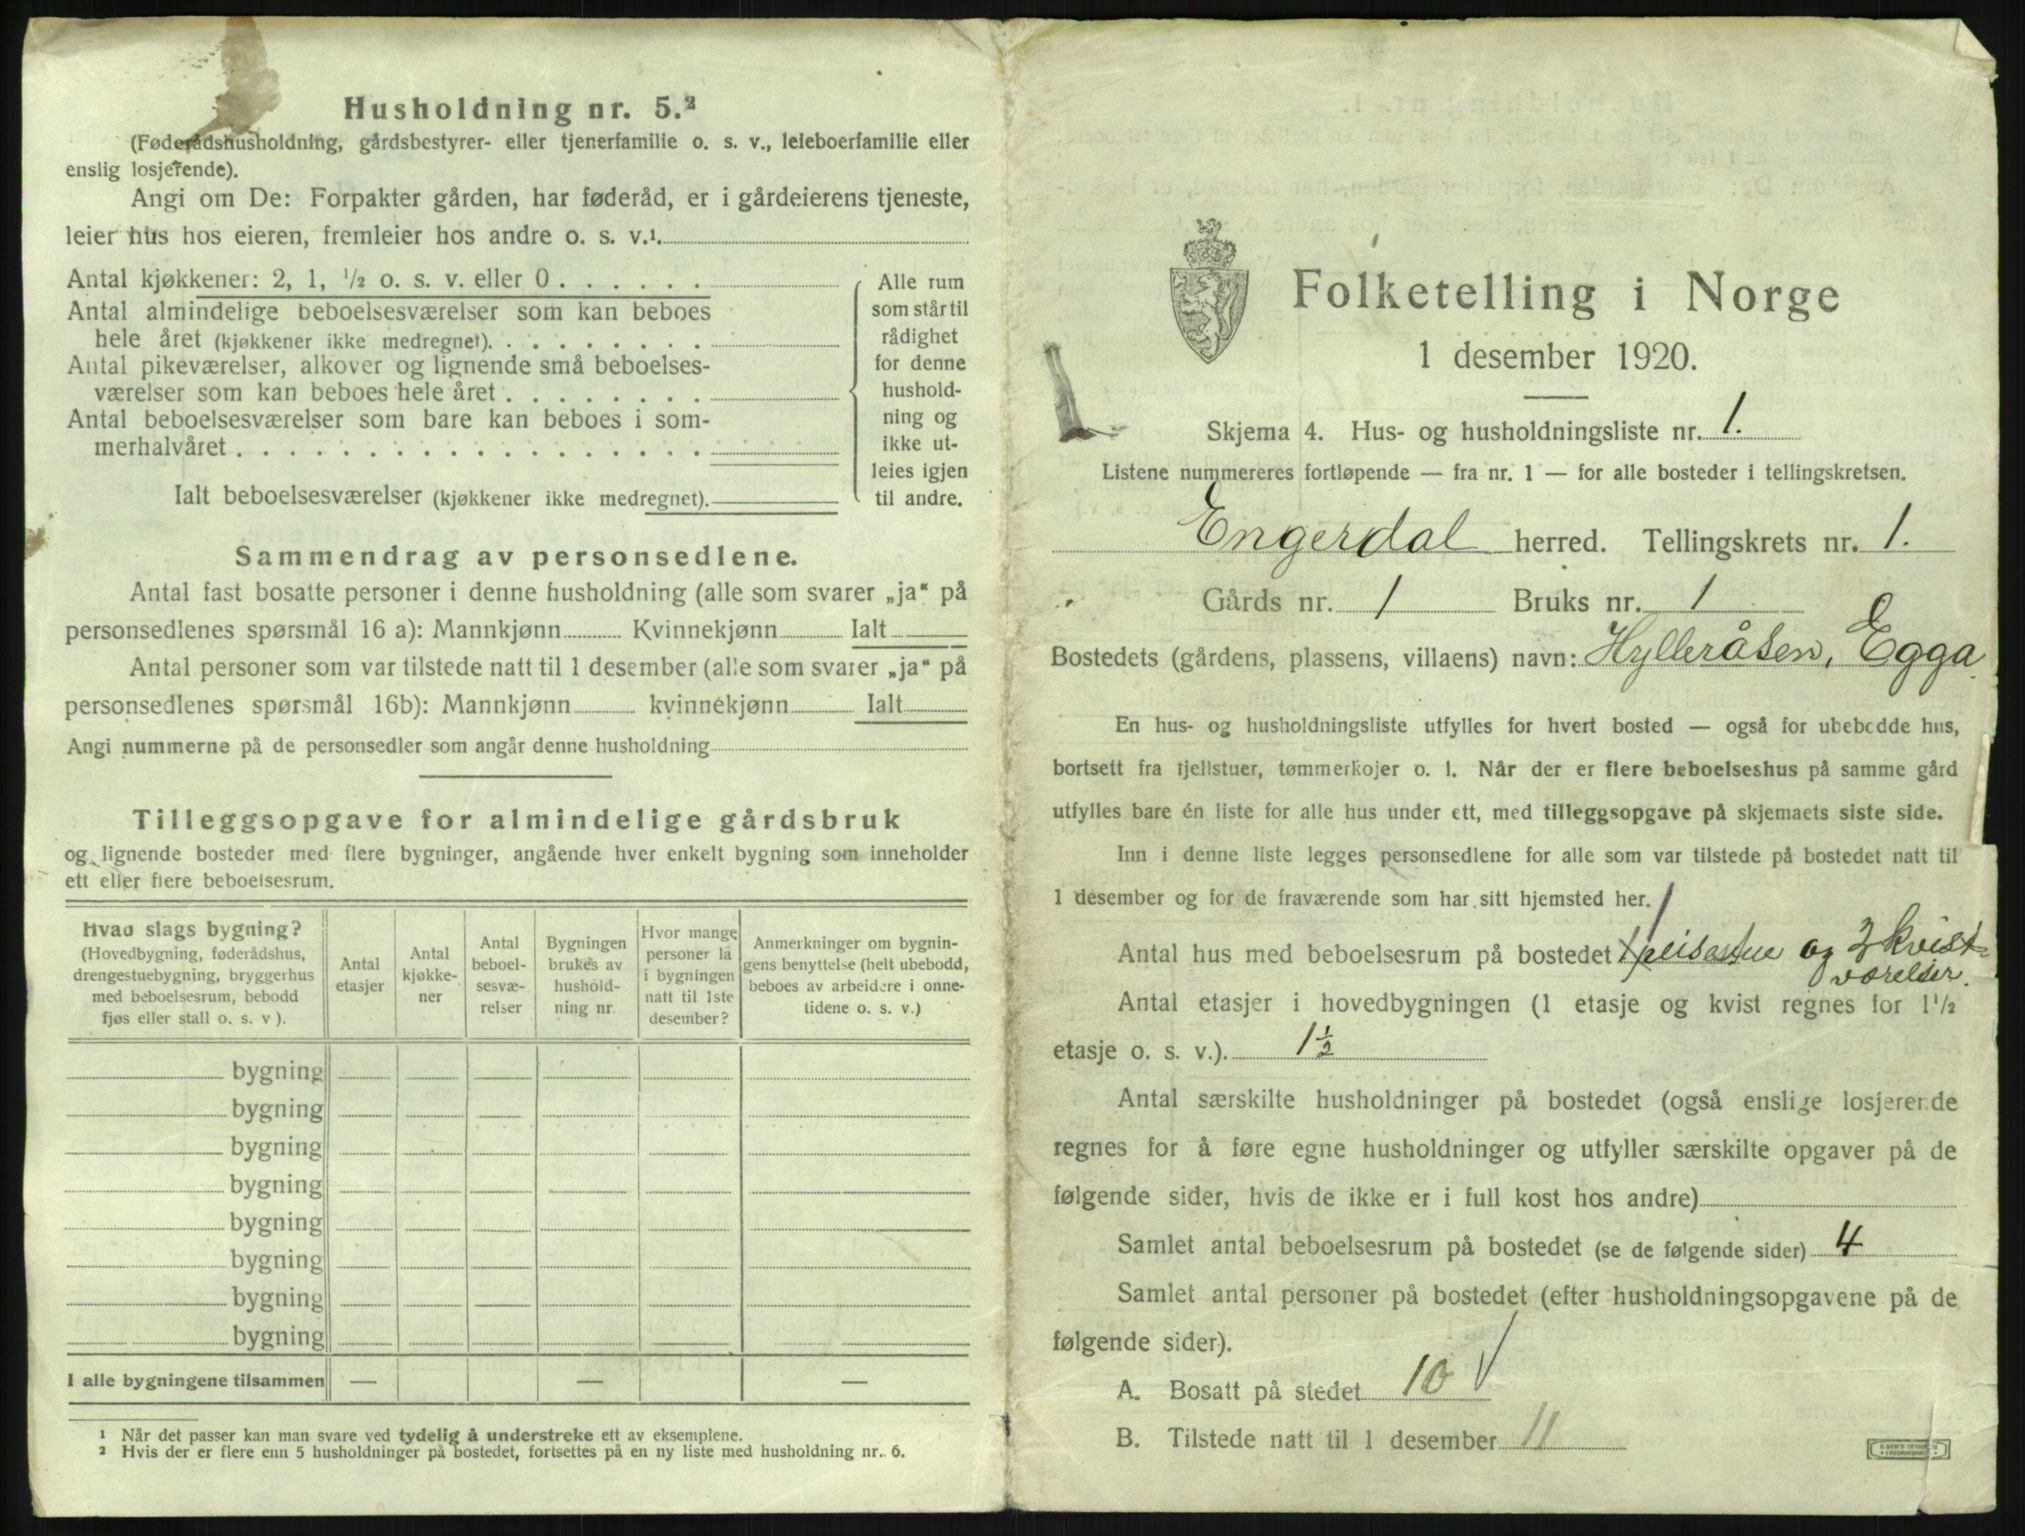 Husholdning nr. 5.²
(Føderådshusholdning, gårdsbestyrer- eller tjenerfamilie o. s. v., leieboerfamilie eller
enslig losjerende).
Angi om De: Forpakter gården, har føderåd, er i gårdeierens tjeneste,
leier hus hos eieren, fremleier hos andre o. s. v.¹.
Antal kjøkkener: 2, 1, ½ o. s. v. eller 0 . . . . . .
Antal almindelige beboelsesværelser som kan beboes
hele året (kjøkkener ikke medregnet). . . . . . . . .
Antal pikeværelser, alkover og lignende små beboelses-
værelser som kan beboes hele året . . . . . . . .
Antal beboelsesværelser som bare kan beboes i som-
merhalvåret . . . . . . . . . . . . . . . . . .
Ialt beboelsesværelser (kjøkkener ikke medregnet).
Alle rum
som står til
rådighet
for denne
hushold-
ning og
ikke ut-
leies igjen
til andre.
Sammendrag av personsedlene.
Antal fast bosatte personer i denne husholdning (alle som svarer „ja“ på
personsedlenes spørsmål 16 a): Mannkjønn Kvinnekjønn Ialt
Antal personer som var tilstede natt til 1 desember (alle som svarer „ja“ på
personsedlenes spørsmål 16b): Mannkjønn kvinnekjønn Ialt
Angi nummerne på de personsedler som angår denne husholdning
Tilleggsopgave for almindelige gårdsbruk
og lignende bosteder med flere bygninger, angående hver enkelt bygning som inneholder
ett eller flere beboelsesrum.
Hvad slags bygning?
(Hovedbygning, føderådshus,
drengestuebygning, bryggerhus
med beboelsesrum, bebodd
fjøs eller stall o. s. v ).
Antal
etasjer
Antal
kjøkke-
ner
Antal
beboel-
sesvæ-
relser
Bygningen
brukes av
hushold-
ning nr.
Hvor mange
personer lå
i bygningen
natt til 1ste
desember?
Anmerkninger om bygnin-
gens benyttelse (helt ubebodd,
beboes av arbeidere i onne-
tidene o. s. v.)
bygning
bygning
bygning
bygning
bygning
bygning
bygning
bygning
I alle bygningene tilsammen — — —
¹ Når det passer kan man svare ved tydelig å understreke ett av eksemplene.
² Hvis der er flere enn 5 husholdninger på bostedet, fortsettes på en ny liste med husholdning nr. 6.
Folketelling i Norge
1 desember 1920.
Skjema 4. Hus- og husholdningsliste nr. 1.
Listene nummereres fortløpende — fra nr. 1 — for alle bosteder i tellingskretsen.
Engerdal herred. Tellingskrets nr. 1.
Gårds nr. 1 Bruks nr. 1
Bostedets (gårdens, plassens, villaens) navn: Hylleråsen, Egga.
En hus- og husholdningsliste utfylles for hvert bosted — også for ubebodde hus,
bortsett fra fjellstuer, tømmerkojer o. l. Når der er flere beboelseshus på samme gård
utfylles bare én liste for alle hus under ett, med tilleggsopgave på skjemaets siste side.
Inn i denne liste legges personsedlene for alle som var tilstede på bostedet natt til
1 desember og for de fraværende som har sitt hjemsted her.
1
Antal hus med beboelsesrum på bostedet 1 peisestue og 2 kvist-
værelser.
Antal etasjer i hovedbygningen (1 etasje og kvist regnes for 1½
etasje o. s. v.). 1½
Antal særskilte husholdninger på bostedet (også enslige losjerende
regnes for å føre egne husholdninger og utfyller særskilte opgaver på de
følgende sider, hvis de ikke er i full kost hos andre)
Samlet antal beboelsesrum på bostedet (se de følgende sider) 4
Samlet antal personer på bostedet (efter husholdningsopgavene på de
følgende sider).
A. Bosatt på stedet 10
B. Tilstede natt til 1 desember 11